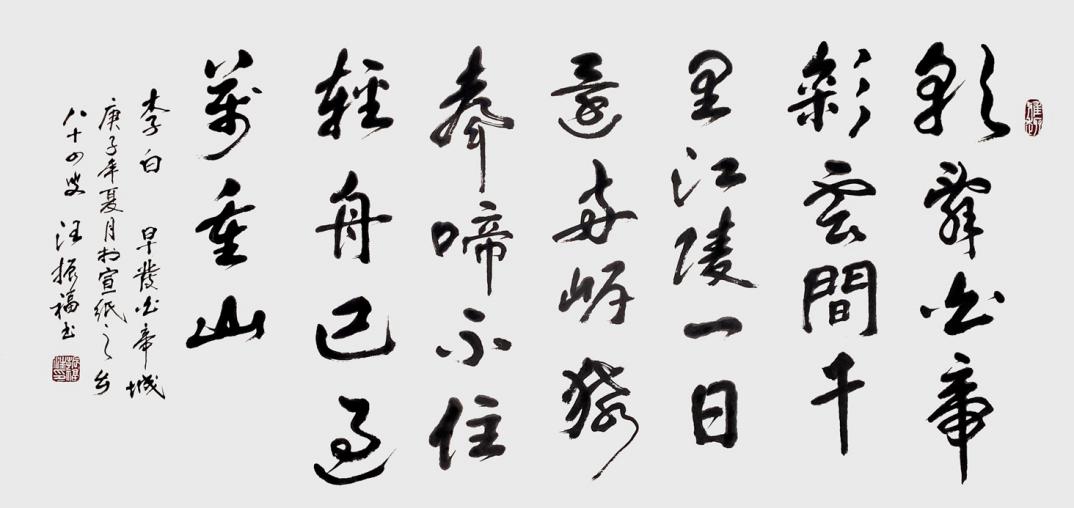 朝辭白帝
彩雲間千
里江陵一日
還兩岸猿
聲啼不住
輕舟已過
萬重山
李白 早發白帝城
庚子年夏月於宣紙之鄉
八十四叟 汪振福書